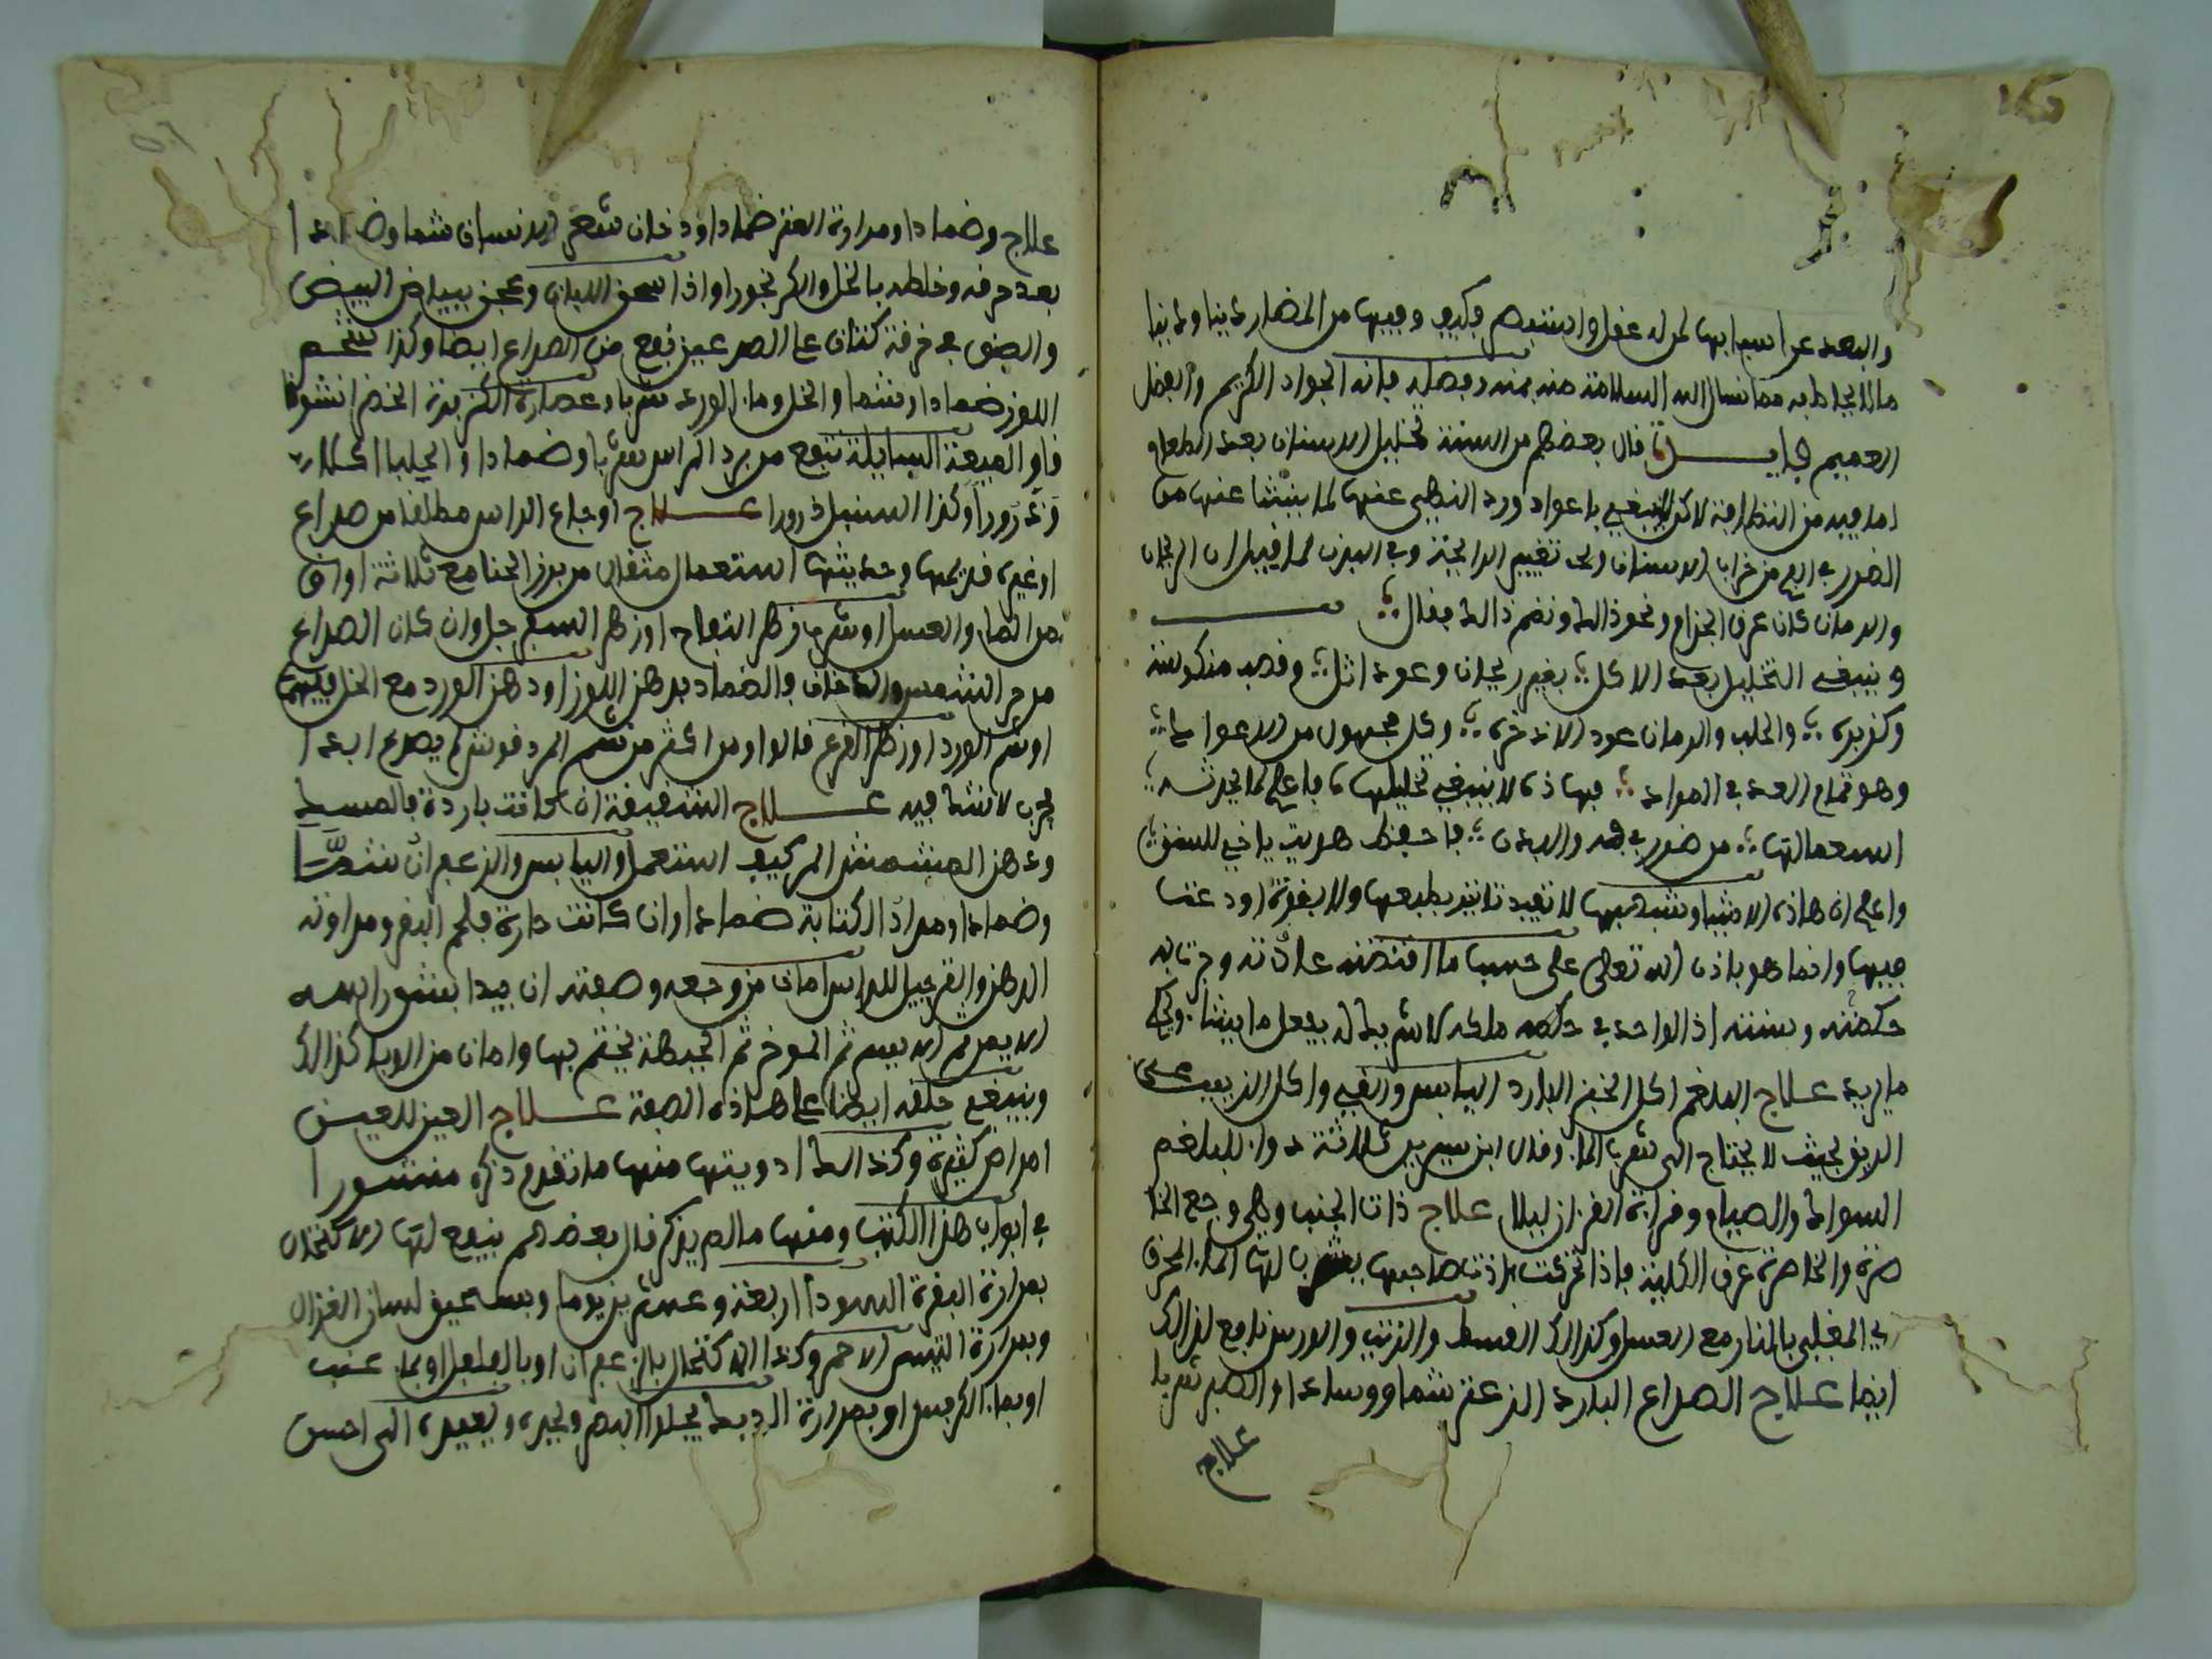 والبعد عن اسبابها لمن له عقل واستبصر فكيف وفيها من المضار دينا ودنيا
مالا يحاط به مما نسال الله السلامة منه بمنه وفضله فانه الجواد الكريم والفضل
العميم فايدة قال بعضهم من السنة تخليل الاسنان بعد الطعام
لما فيه من النظافة لاكن لا ينبغي باعواد ورد النهي عنها لما ينشا عنها من
الضرر في الفم من خراب الاسنان ولحم تغيير الرايحة وفي البدن لما قيل ان الريحان
والرمان كان عرق الجذام ونحو ذالك ونضم ذالك فقال
وينبغي التخليل بعد الاكل بغير ريحان وعود اثل وقصب مكنوسة
وكزبره والحلب والرمان عود الاذخره وكل مجهول من الاعواد
وهو تمام العد في المواد فهاذه لا ينبغي تخليلها فاعلم لما يحدثه
استعمالها من ضرر في فمه والبدن فاحفظ هديت ياخي للسنن
واعلم ان هاذه الاشيا وشبهها لا تفيد تاثيرا بطبعها ولا بقوة اودعت
فيها وانما هو باذن الله تعالى على حسب ما اقتضته عادته وجرت به
حكمته وسنته اذ الواحد في حكمه ملكه لا شريك له يفعل ما يشاء ويحكم
ما يريد علاج البلغم اكل الخبز البارد اليابس والقيء واكل الزبيب على
الريق بحيث لا يحتاج الى شرب الماء وقال ابن سيرين ثلاثة دواء للبلغم
السواك والصيام وقراءة القرءان ليلا علاج ذات الجنب وهي وجع الخا
صرة والخاصرة عرق الكلية فاذا تحركت اذت صاحبها يشرب لها الماء المحرق
اي المغلى بالنار مع العسل وكذالك القسط والزيت والورس نافع لذالك
ايضا علاج الصداع البارد الزعتر شما ووسادا والصبر شربا
علاج
علاج وضمادا ومرارة العنز ضمادا ودخان شعر الانسان شما وضمادا
بعد حرقه وخلطه بالخل والكرم بخورا واذا سحق اللبان وعجن ببياض البيض
والصق في خرقة كتان على الصدعين نفع من الصداع ايضا وكذا شحم
اللوز ضمادا وشما والخل وماء الورد شربا وعصارة الكزبرة الخضرا نشوقا
قاو الميعة السايلة تنفع من برد الراس شربا وضمادا والجلبا
وذرورا وكذا السنبل ذرورا علاج اوجاع الراس مطلقا من صداع
اوغيره قديمها وحديثها استعمال مثقال من بزر الحنا مع ثلاثة اواق
من الماء والعسل او شراب زهر التفاح او زهر السفرجل وان كان الصداع
من حر الشمس والدخان فالضماد بدهن اللوز او دهن الورد مع الخل فيهما
او شم الورد او زهر القرع قالوا ومن اكثر من شم المردقوش لم يصدع ابدا
مجرب لا شك فيه علاج الشقيقة ان كانت باردة فالمسك
ودهن المشمش المر كيف استعمل واليابس والزعفران شما
وضمادا ومداد الكتابة ضمادا وان كانت حارة فلحم البقر ومرارته
الدهن والترجيل للراس امان من وجعه وصفته ان يبدا بشق راسه
الايمن ثم الايسر ثم الموخر ثم الجبهة يختم بها وامان من الوبا كذالك
وينبغي حلقه ايضا على هاذه الصفة علاج العين للعين
امراض كثيرة وكذالك ادويتها منها ما تقدم ذكره منشورا
في ابواب هذا الكتاب ومنها مالم يذكر قال بعضهم ينفع لها الاكتحال
بمرارة البقرة السوداء اربعة وعشرين يوما وبسحيق لسان الغزال
وبمرارة التيس الاحمر وكذا الاكتحال بالزعفران او بالفلفل او بماء عنب
او بماء الكرفس او بمرارة الديك يجلوا البصر ويحده ويعيده الى احسن